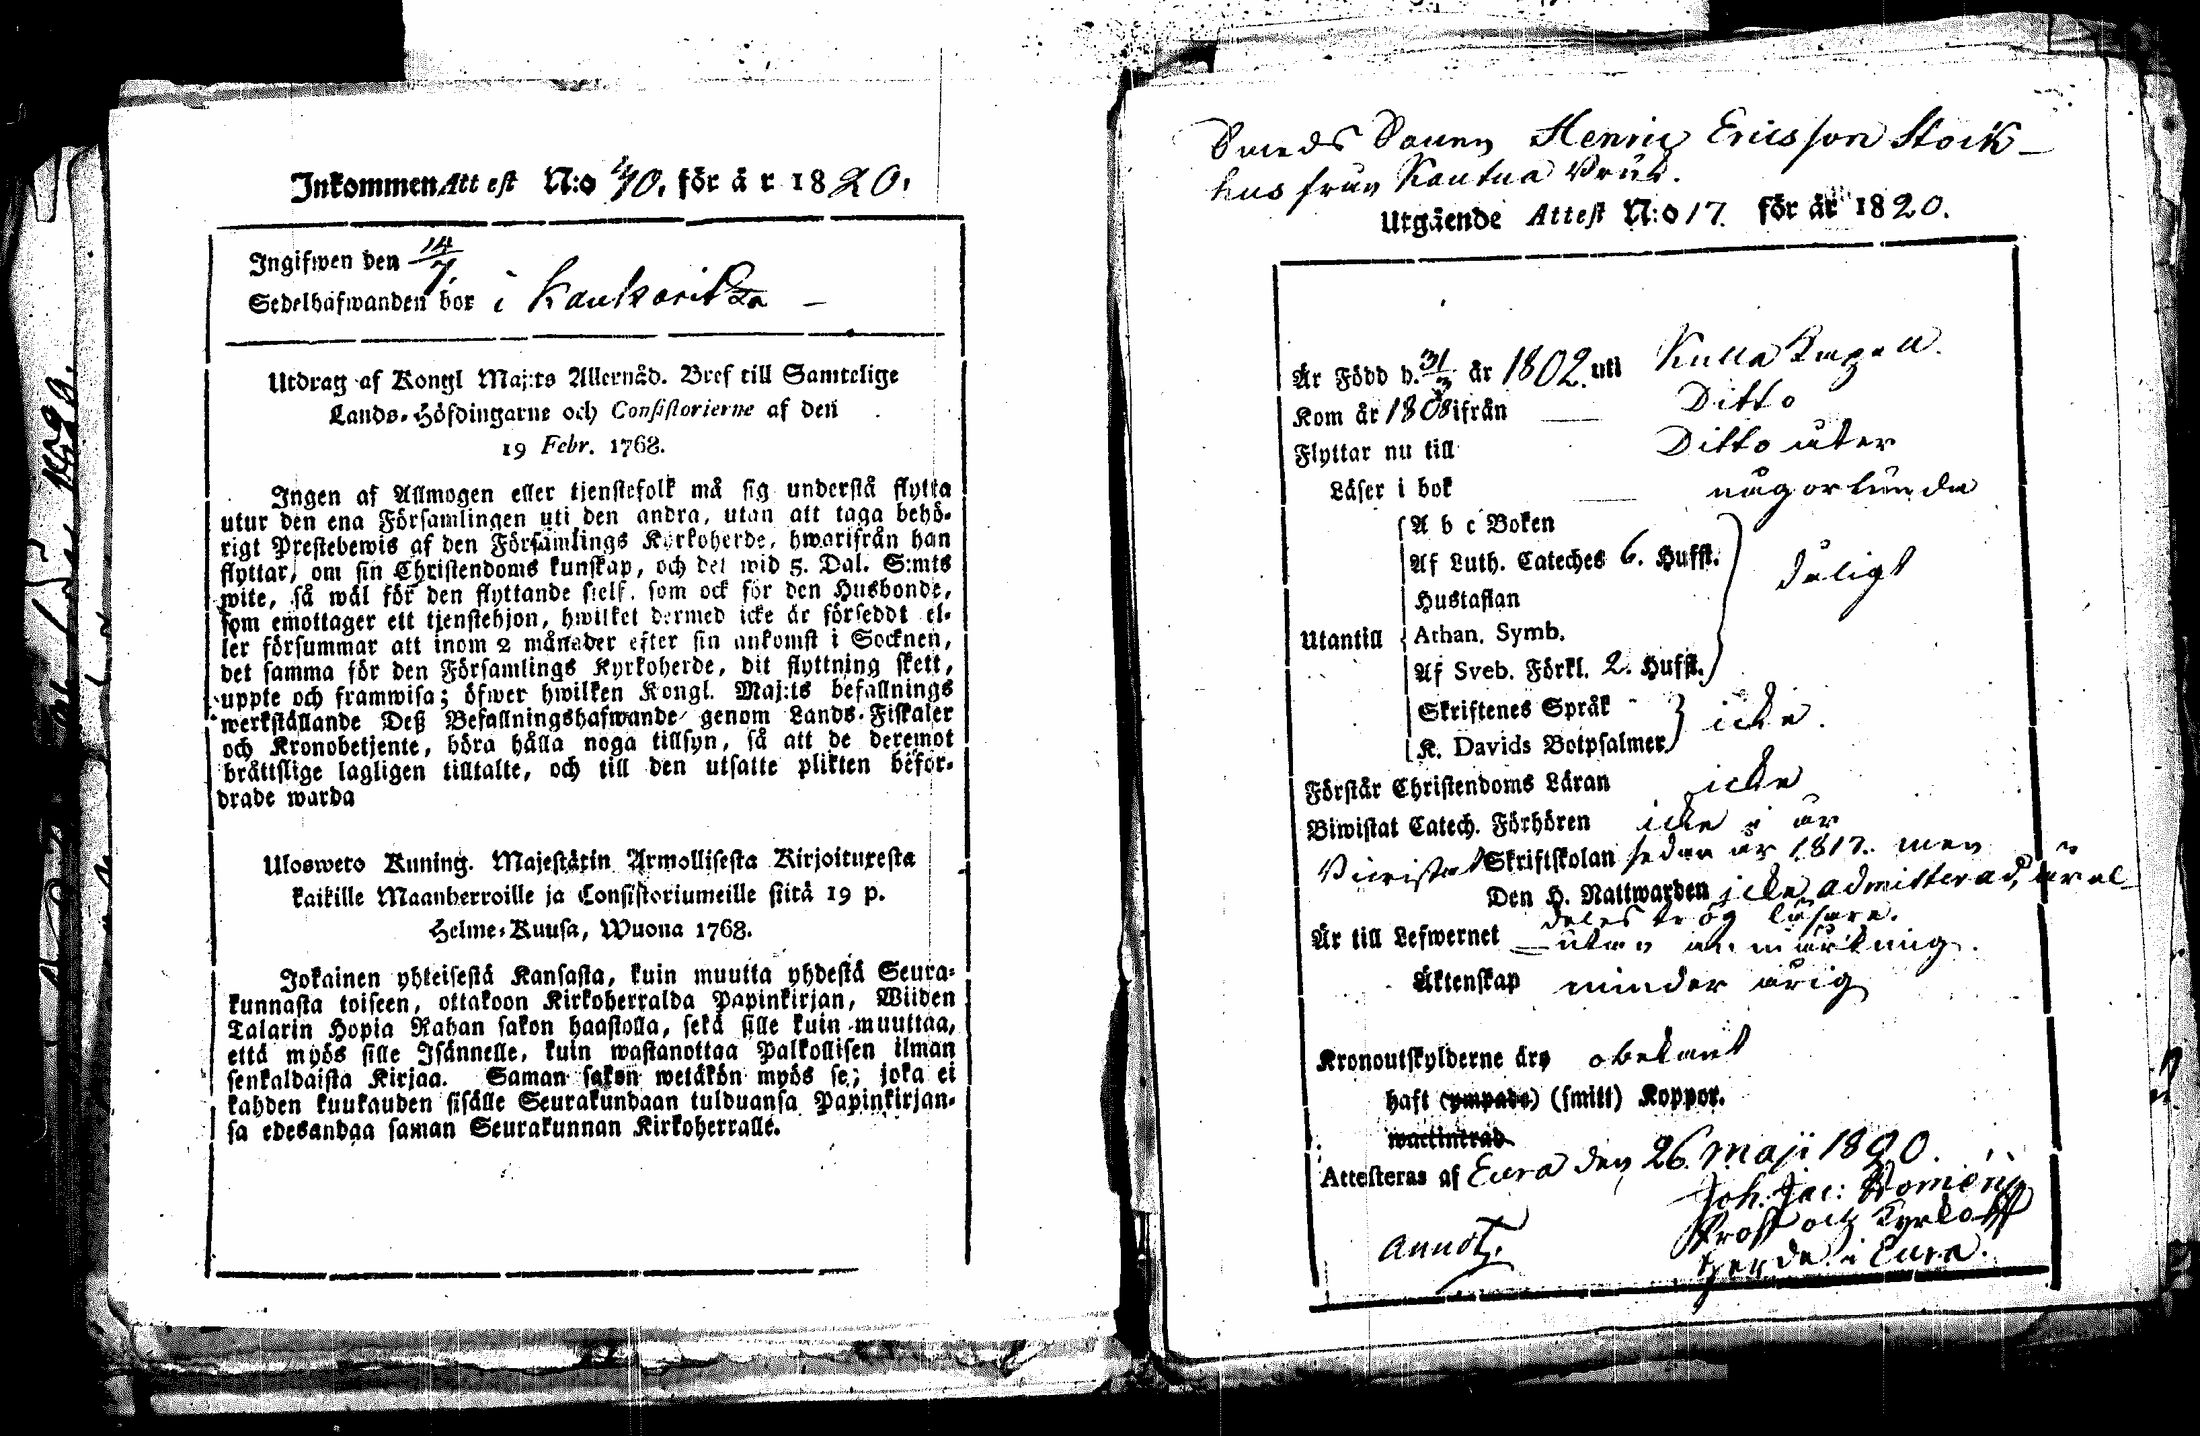 Inkommen Attest N:o 40. för år 1820.
Ingifwen den 14/7.
Sedelhafwanden bor i Kaukaritza
Utdrag af Kongl Maj:ts Allernåd. Bref till Samtelige
Lands-Höfdingarne och Consistorierne af den
19 Febr. 1768.
Ingen af Allmogen eller tjenstefolk må sig understå flytta
utur den ena Församlingen uti den andra, utan att taga behö-
rigt Prestebewis af den Församlings Kyrkoherde, hwarifrån han
flyttar, om sin Christendoms kunskap, och det wid 5. Dal. S:mts
wite, så wäl för den flyttande sielf, som ock för den Husbonde,
som emottager ett tjenstehjon, hwilket dermed icke är förseddt el-
ler försummar att inom 2 månader efter sin ankomst i Socknen,
det samma för den Församlings Kyrkoherde, dit flyttning skett,
uppte och framwisa; öfwer hwilken Kongl. Maj:ts befallnings
werkställande Deß Befallningshafwande genom Lands-Fiskaler
och Kronobetjente, böra hålla noga tillsyn, så att de deremot
bråttslige lagligen tilltalte, och till den utsatte plikten befor-
drade warda
Ulosweto Kuning. Majestätin Armollisesta Kirjoituxesta
kaikille Maanherroille ja Consistoriumeille siitä 19 p.
Helme-Kuusa, Wuona 1768.
Jokainen yhteisestä Kansasta, kuin muutta yhdestä Seura-
kunnasta toiseen, ottakoon Kirkoherralda Papinkirjan, Wiiden
Talarin Hopia Rahan sakon haastolla, sekä sille kuin muuttaa,
että myös sille Isännelle, kuin wastanottaa Palkollisen ilman
senkaldaista Kirjaa. Saman sakon wetäkön myös se; joka ei
kahden kuukauden sisälle Seurakundaan tulduansa Papinkirjan-
sa edesandaa saman Seurakunnan Kirkoherralle.
Smeds Sonen Henric Ericsson Stock-
hus från Kautua Bruk.
Utgående Attest N:o 17. för år 1820.
Är Född d. 31/3 år 1802. uti Kulla Capell.
Kom år 1808 ifrån Ditto
Flyttar nu till Ditto åter
Läser i bok någorlunda
A b c Boken
Af Luth. Cateches 6. Hufst.
Hustaflan
Utantill Athan. Symb. dåligt
Af Sveb. Förkl. 2. Hufst.
Skriftenes Språk
K. Davids Botpsalmer icke.
Förstår Christendoms Läran icke
Biwistat Catech. Förhören icke i år
Biwistat Skriftskolan sedan år 1817. men
Den H. Nattwarden icke admitterad, är al-
deles trög läsare.
Är till Lefwernet utan anmärkning.
Äktenskap minder årig
Kronoutskylderne äro obekant
haft (ympade) (smitt) Koppor.
waccinerad
Attesteras af Eura den 26. Maji 1820.
Joh: Jac:
Prost och Kyrko
herde i Eura.
Annot.